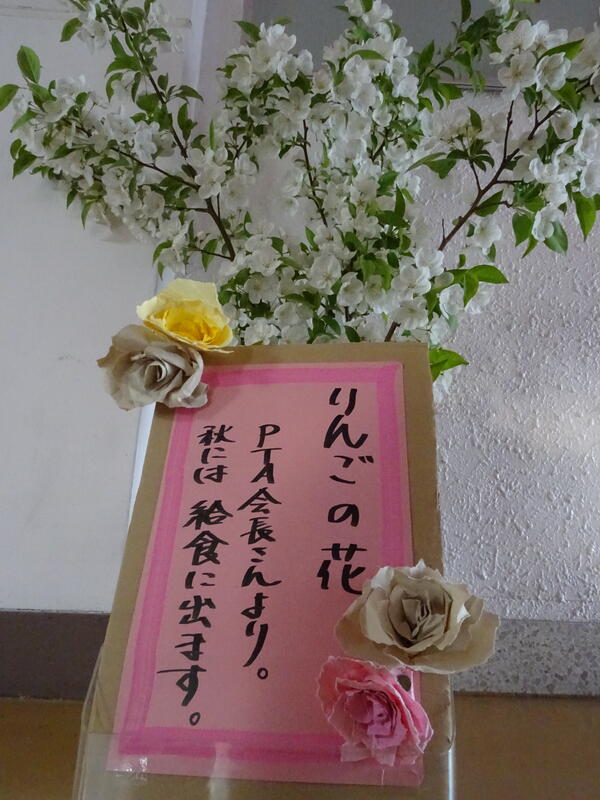 りんごの花
PTA会長さんより。
秋には 給食に出ます。